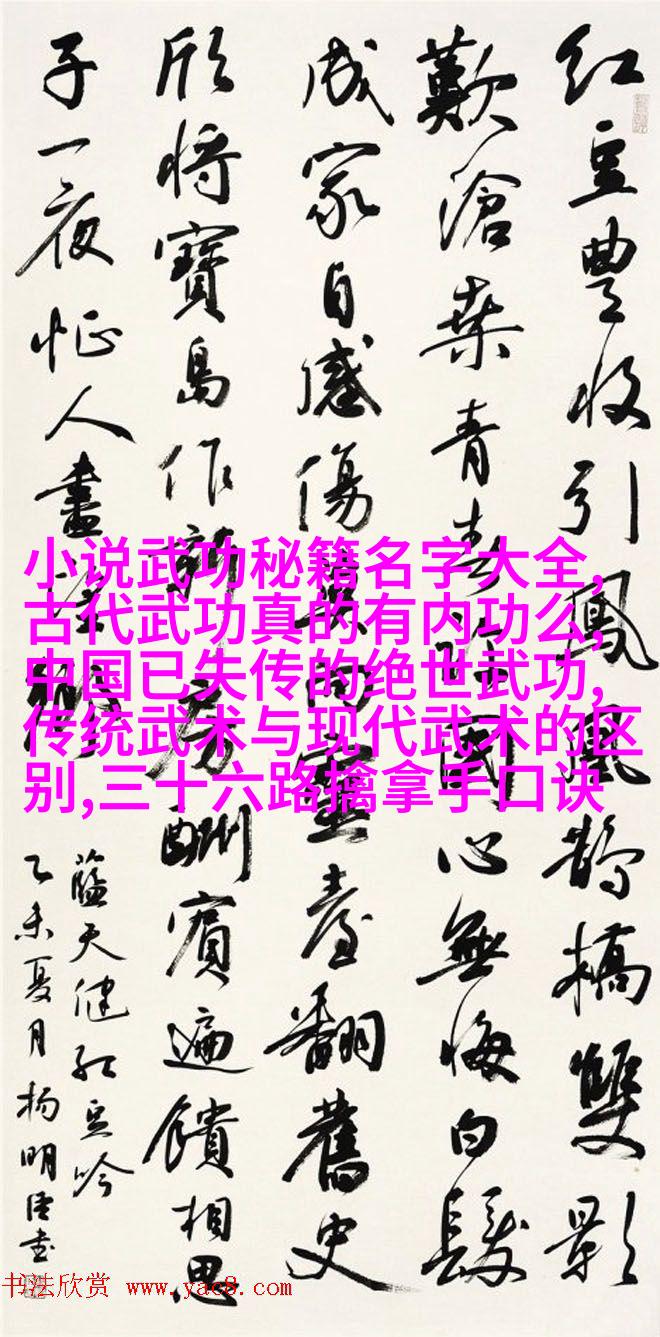 紅豆豊收引鳳凰鵲橋雙影
歎滄桑青春許國心無悔白髮
成家自感傷莫向靈臺翻舊史
欣將寶島作新房酬賓遍饋相思
子一夜忙人
天健紅豆吟
乙未夏月楊明臣書
小说武功秘籍名字大全,
古代武功真的有内功么,
中国已失传的绝世武功,
传统武术与现代武术的区
别,三十六路擒拿手口诀
书法欣赏 www.yac8.com